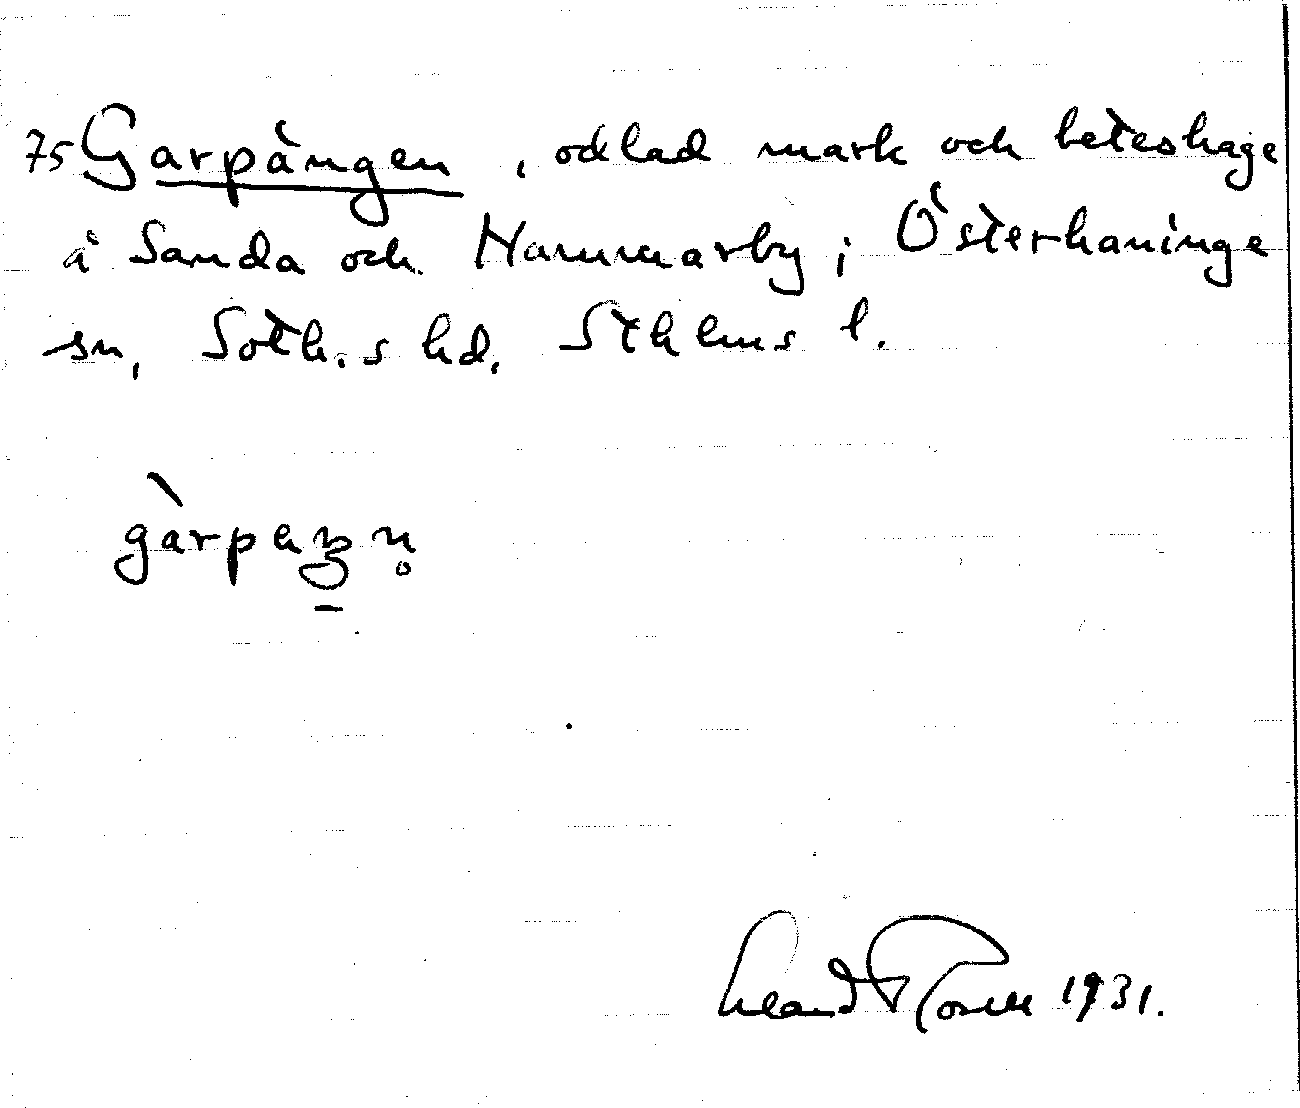 75 Garpängen, odlad mark och beteshage
å Sanda och Hammarby; Österhaninge
sn, Soth.s hd. Sthlms l.
gàrpeŋn̥
1931.